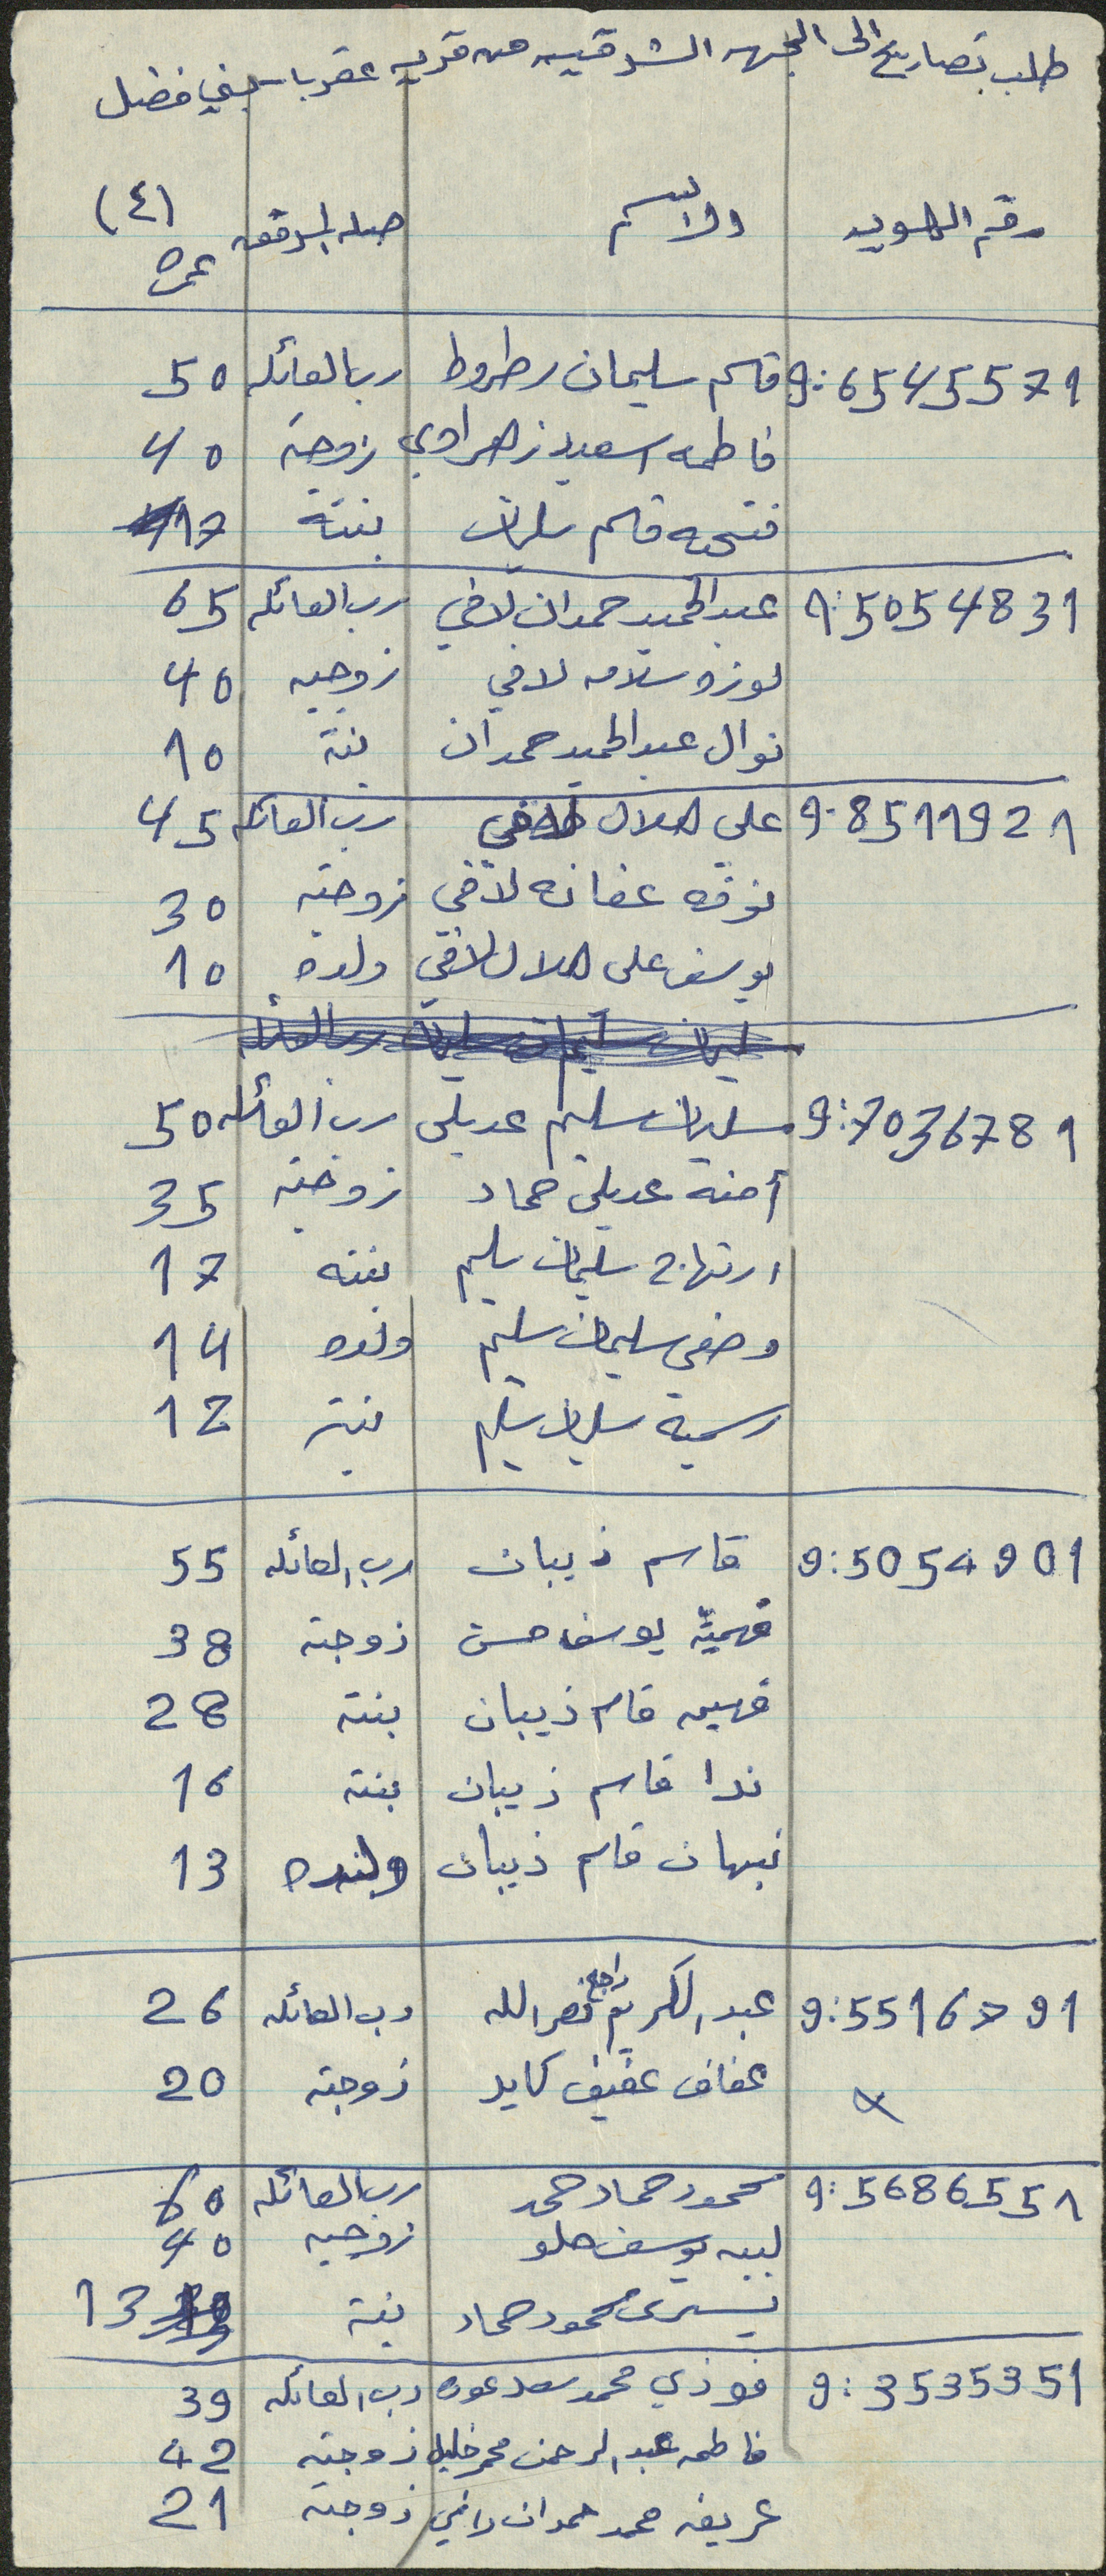 طلب تصاريح الى الجهه الشرقيه من قريه عقربا - بني فضل
(٤)
رقم الهويه والاسم صله المرفقه عمره
9:6545571 قاسم سليمان رطروط رب العائله 50
فاطمه اسعيد زهراوي زوجته 40
فتحيه قاسم سليمان بنته 17
9:5054831 عبد الحميد حمدان لافي رب العائله 65
لوزه سلامه لافي زوجيه 40
نوال عبد الحميد حمدان بنته 10
9:8511921 على هلال لافي رب العائله 45
نوفه عفانه لافي زوجته 30
يوسف على هلال لافي ولده 10
9:7036781 سليمان سليم عديلي رب العائله 50
آمنه عديلي حماد زوجته 35
ارتهاج سليمان سليم بنته 17
وصفي سليمان سليم ولده 14
رسمية سليمان سليم بنته 12
9:5054901 قاسم ذيبان رب العائله 55
فهميّه يوسف حسن زوجته 38
فهيمه قاسم ذيبان بنته 28
ندا قاسم ذيبان بنته 16
نبهان قاسم ذيبان ولده 13
9:5516791 عبد الكريم راجح نصر الله رب العائله 26
عفاف عفيف كايد زوجته 20
9:5686551 محمود حماد حمد رب العائله 60
لبيبه يوسف حلو زوجيه 40
يسرى محمود حماد بنته 13
9:3535351 فوزي محمد سعد عوده رب العائله 39
فاطمه عبد الرحمن محمد خليل زوجته 42
عريفه محمد حمدان زوجته 21